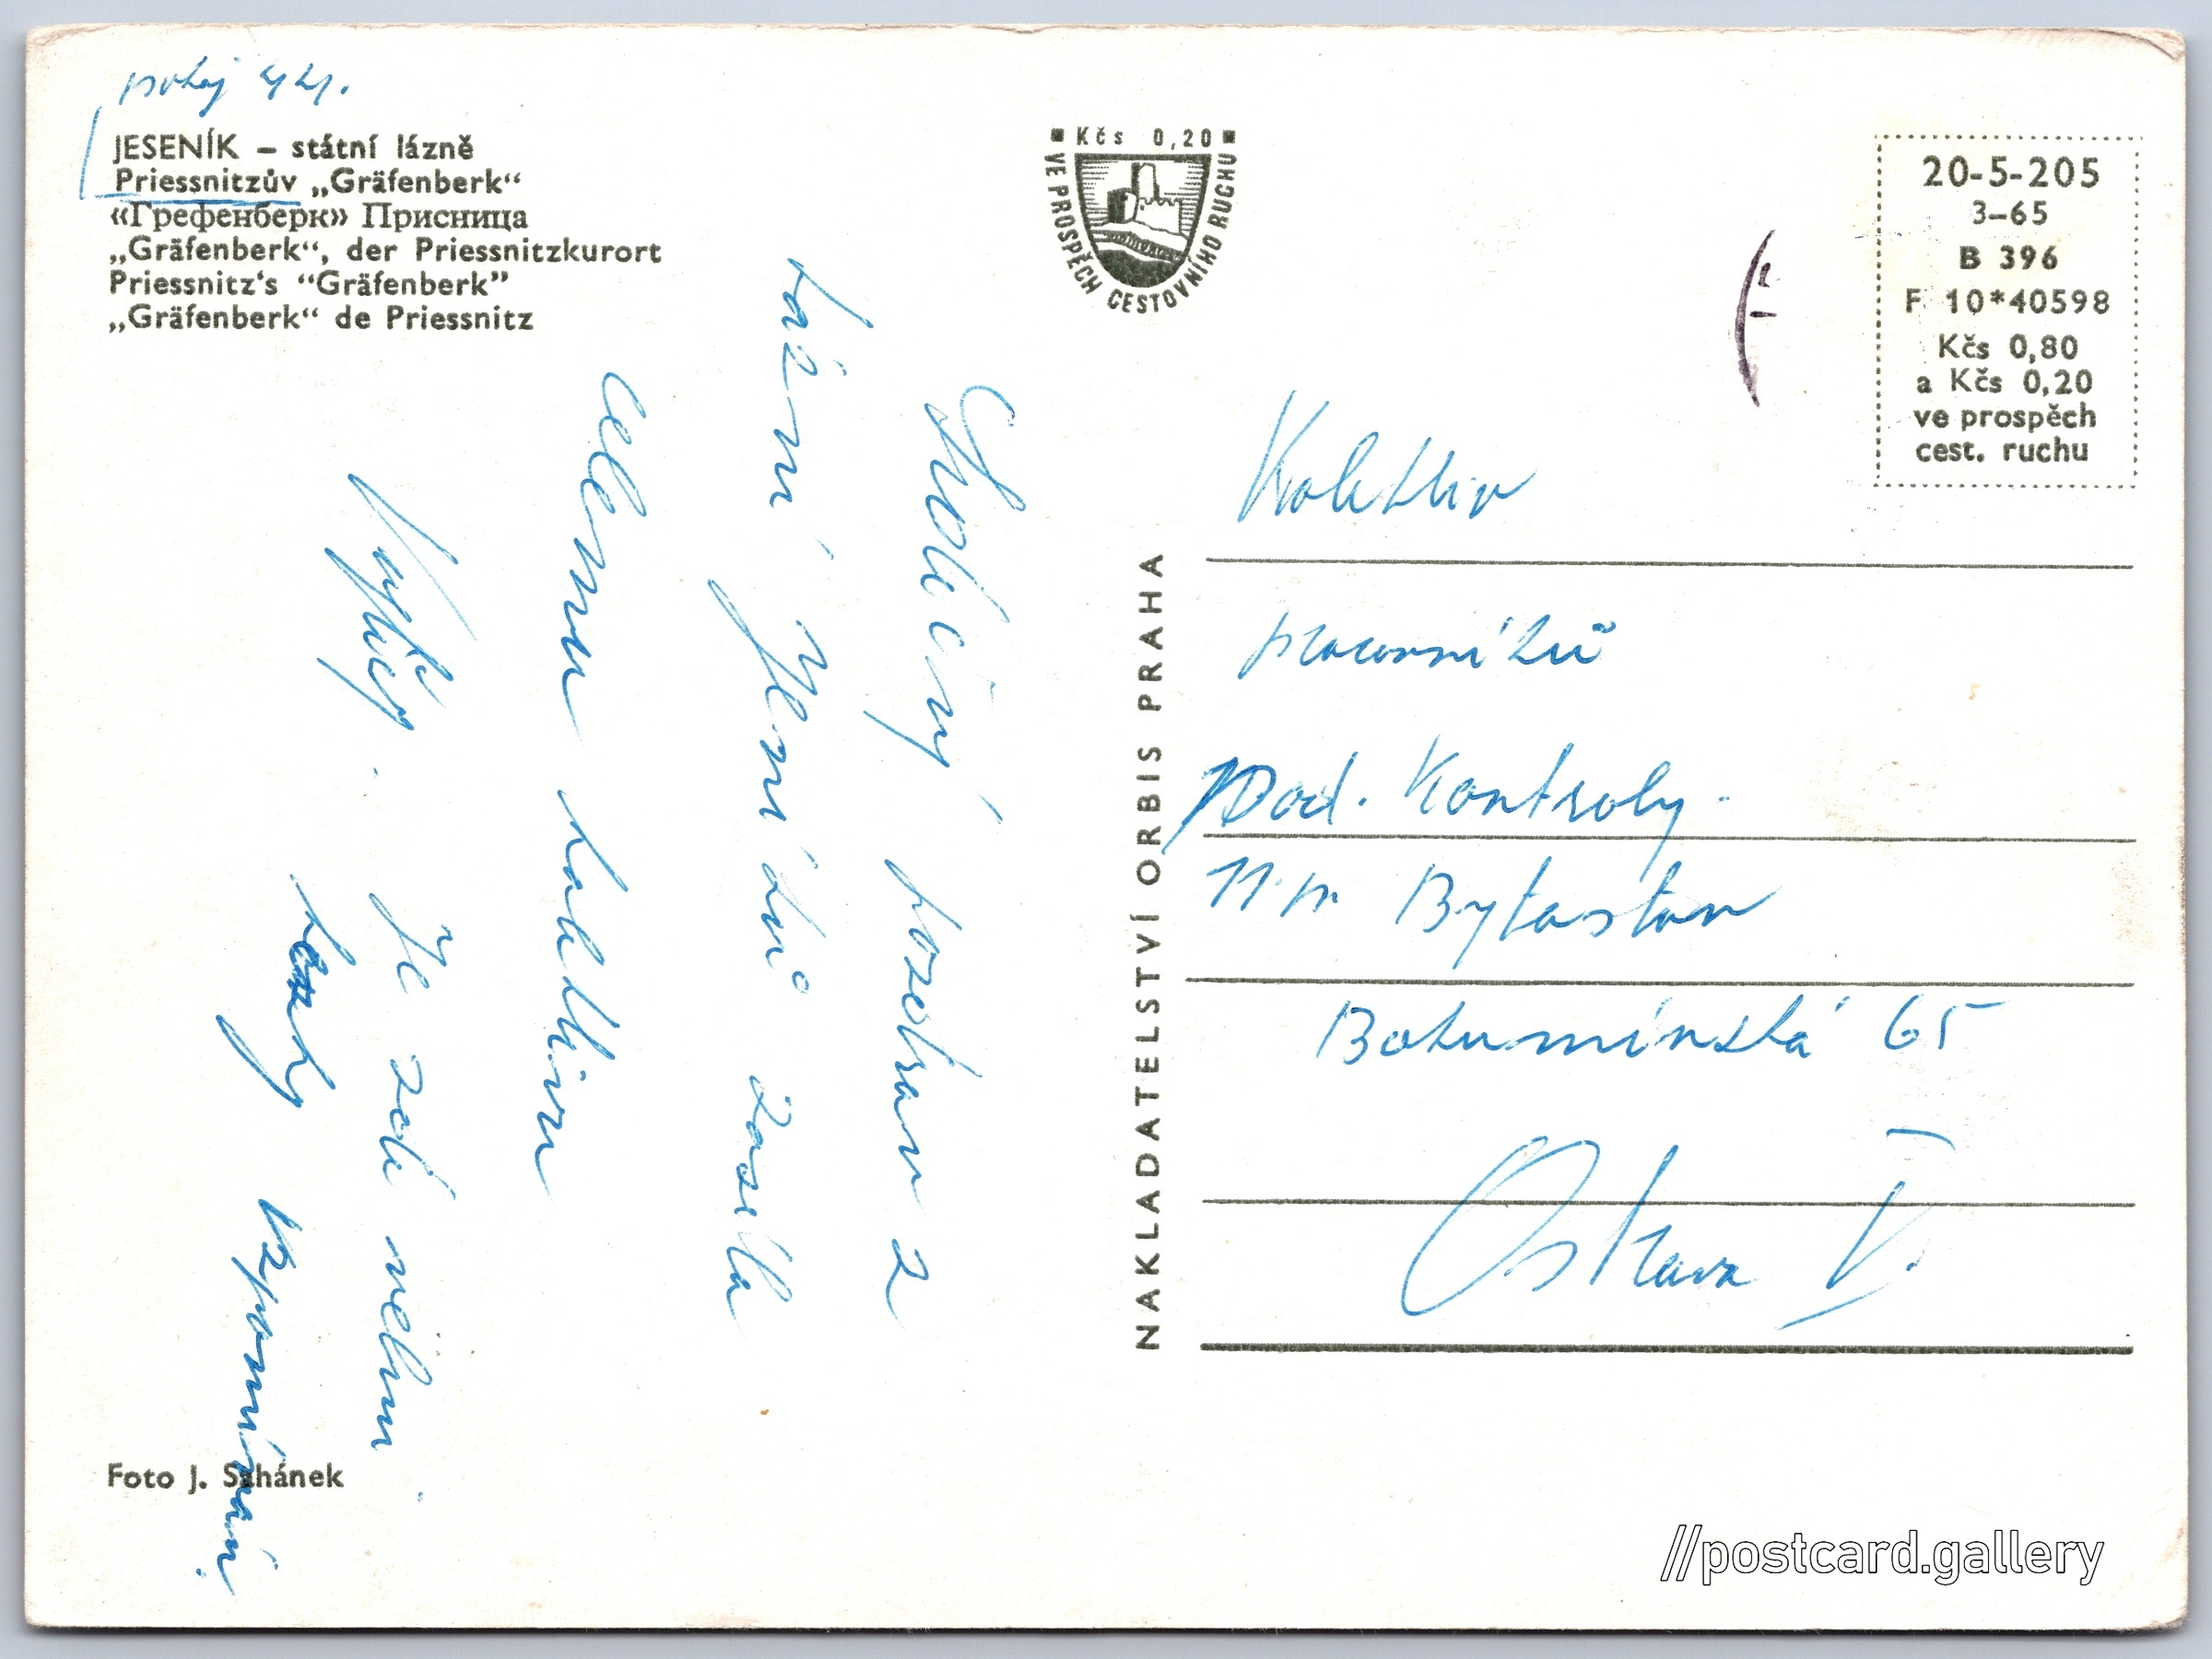 pokoj 421.
JESENÍK – státní lázně
Priessnitzův „Gräfenberk“
«Грефенберк» Присница
„Gräfenberk“, der Priessnitzkurort
Priessnitz‘s “Gräfenberk”
„Gräfenberk“ de Priessnitz
■ Kčs 0,20 ■
VE PROSPĚCH CESTOVNÍHO RUCHU
20-5-205
3–65
B 396
F 10*40598
Kčs 0,80
a Kčs 0,20
ve prospěch
cest. ruchu
Srdečný pozdrav z
lázní Jeseníků zasílá
celému kolektivu
Je zde velmi
vzpomínání.
Foto J. Sahánek
NAKLADATELSTVÍ ORBIS PRAHA
Kolektiv
pracovníků
Odd. Kontroly.
n.p. Bytostav
Bohumínská 65
Ostrava I.
//postcard.gallery